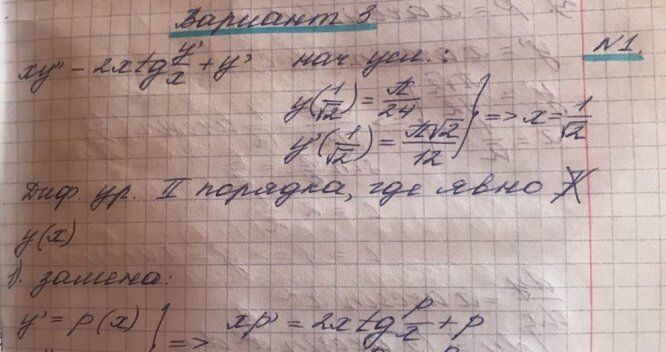 Вариант 3
N1.
xy'' - 2x tg y'/x + y' нач. усл.:
y(1/√2) = π/24
y'(1/√2) = π√2/12 } => x = 1/√2
Диф. ур. II порядка, где явно
y(x)
1). замена:
y' = p(x) } => xp' = 2x tg p/x + p